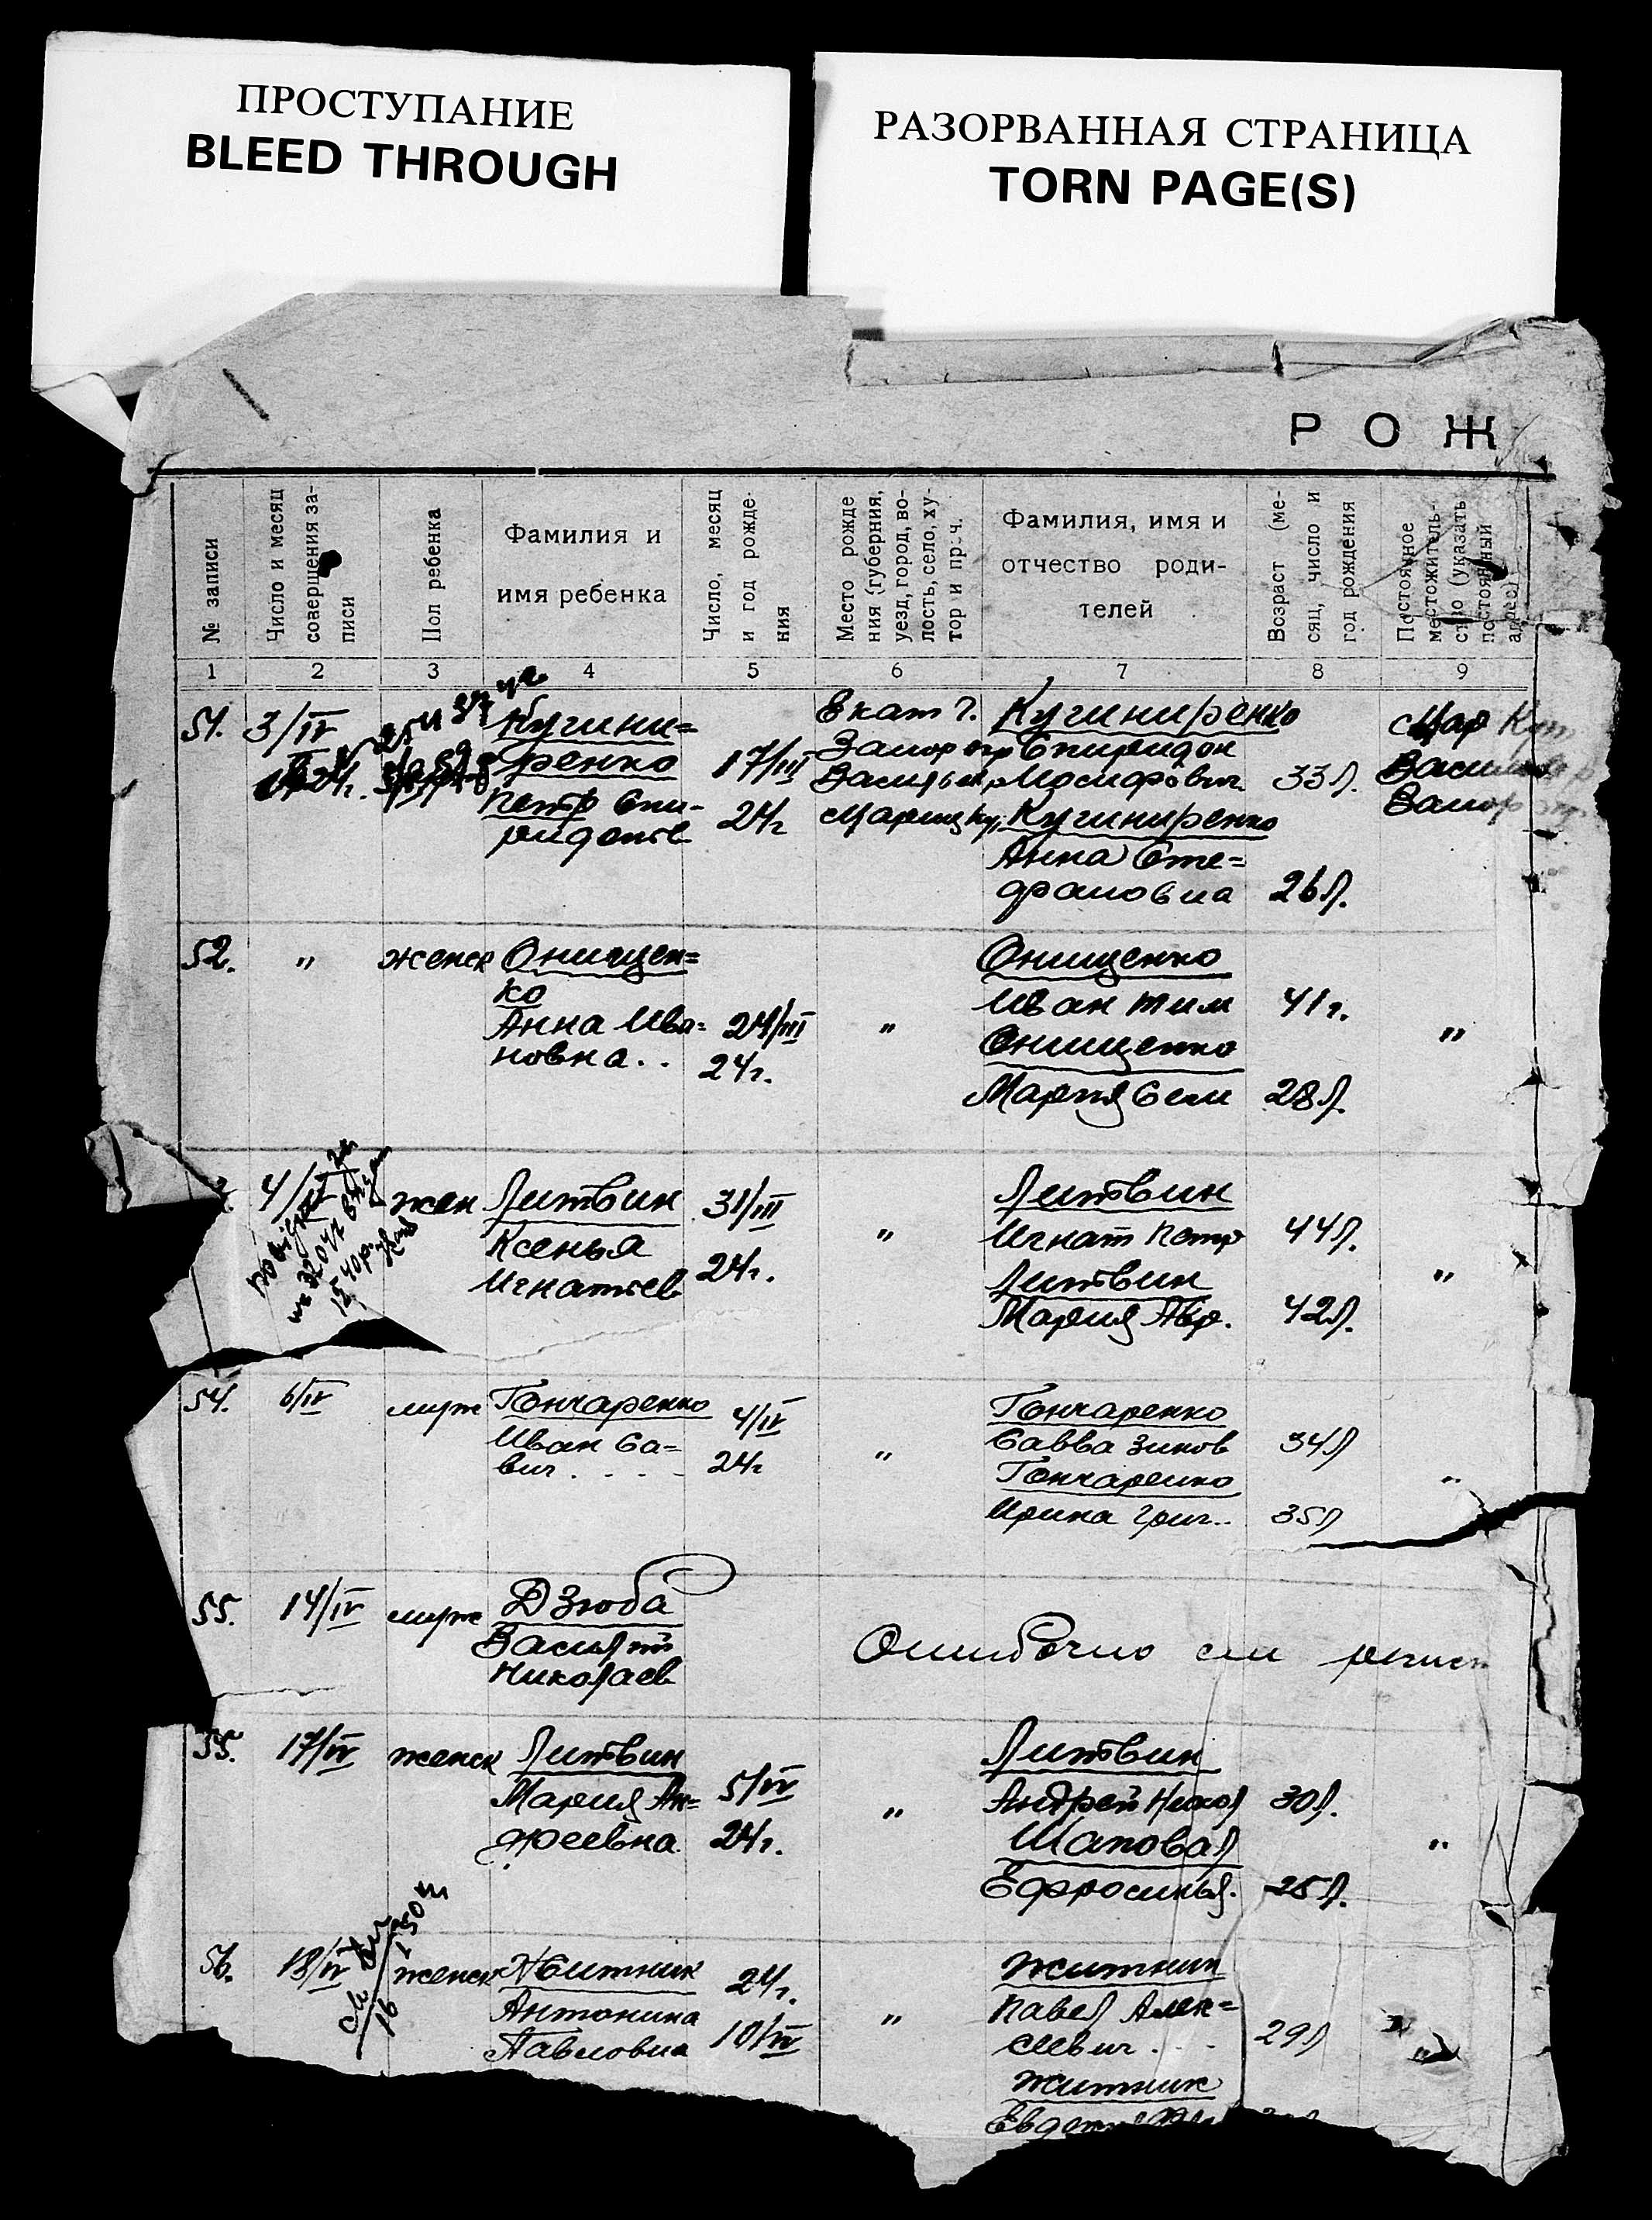 ПРОСТУПАНИЕ
BLEED THROUGH
РАЗОРВАННАЯ СТРАНИЦА
TORN PAGE(S)
РОЖ
№ записи
Число и месяц
совершения за-
писи
Пол ребенка
Фамилия и
имя ребенка
Число, месяц
и год рожде-
ния
Место рожде
ния (губерния,
уезд, город, во-
лость, село, ху-
тор и проч.
Фамилия, имя и
отчество роди-
телей
Возраст (ме-
сяц, число и
год рождения
Постоянное
местожитель-
ство (указать
постоянный
адрес)
1 2 3 4 5 6 7 8 9
51. 3/IV
24г.
Кучини=
ренко
Петр Спи-
ридонов
17/III
24г
Екат г.
Запор окр
Васильев р
Кучиниренко
Спиридон
Иосифович 33л.
Кучиниренко
Анна Сте=
фановна 26л.
52. " женск
Онищен=
ко
Анна Ива=
новна..
24/III
24г.
"
Онищенко
Иван Тим 41г.
Онищенко
Мария Сем 28л.
"
4/IV
жен
Литвин
Ксенья
Игнатьев
31/III
24г.
"
Литвин
Игнат Петр 44л.
Литвин
Мария Авр. 42л.
"
54. 6/IV муж
Гончаренко
Иван Са=
вич . . . .
4/IV
24г
"
Гончаренко
Савва Зинов 34л
Гончаренко
Ирина Григ.. 35л
"
55. 14/IV муж
Дзюба
Василий
Николаев
Ошибочно
55. 17/IV женск
Литвин
Мария Ан=
дреевна
5/IV
24г.
"
Литвин
Андрей Никол 30л.
Шаповал
Ефросинья. 25л.
"
56. 18/IV женск
Житник
Антонина
Павловна
24г.
10/IV
"
Житник
Павел Алек=
сеевич . . . 29л
Житник
"